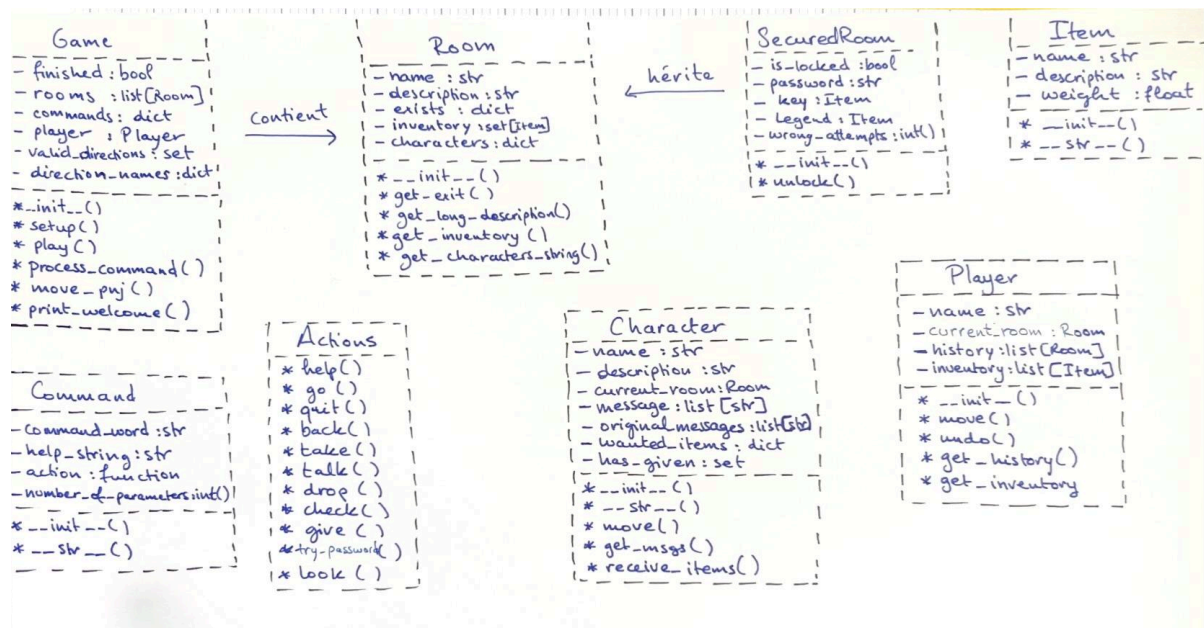 Game
- finished : bool
- rooms : list[Room]
- commands : dict
- player : Player
- valid_directions : set
- direction_names : dict
* __init__()
* setup()
* play()
* process_command()
* move_pnj()
* print_welcome()
contient
Room
- name : str
- description : str
- exists : dict
- inventory : set[Item]
- characters : dict
* __init__()
* get_exit()
* get_long_description()
* get_inventory()
* get_characters_string()
hérite
SecuredRoom
- is_locked : bool
- password : str
- key : Item
- legend : Item
- wrong_attempts : int()
* __init__()
* unlock()
Item
- name : str
- description : str
- weight : float
* __init__()
* __str__()
Command
- command_word : str
- help_string : str
- action : function
- number_of_parameters : int()
* __init__()
* __str__()
Actions
* help()
* go()
* quit()
* back()
* take()
* talk()
* drop()
* check()
* give()
* try_password()
* look()
Character
- name : str
- description : str
- current_room : Room
- message : list[str]
- original_messages : list[str]
- wanted_items : dict
- has_given : set
* __init__()
* __str__()
* move()
* get_msgs()
* receive_items()
Player
- name : str
- current_room : Room
- history : list[Room]
- inventory : list[Item]
* __init__()
* move()
* undo()
* get_history()
* get_inventory